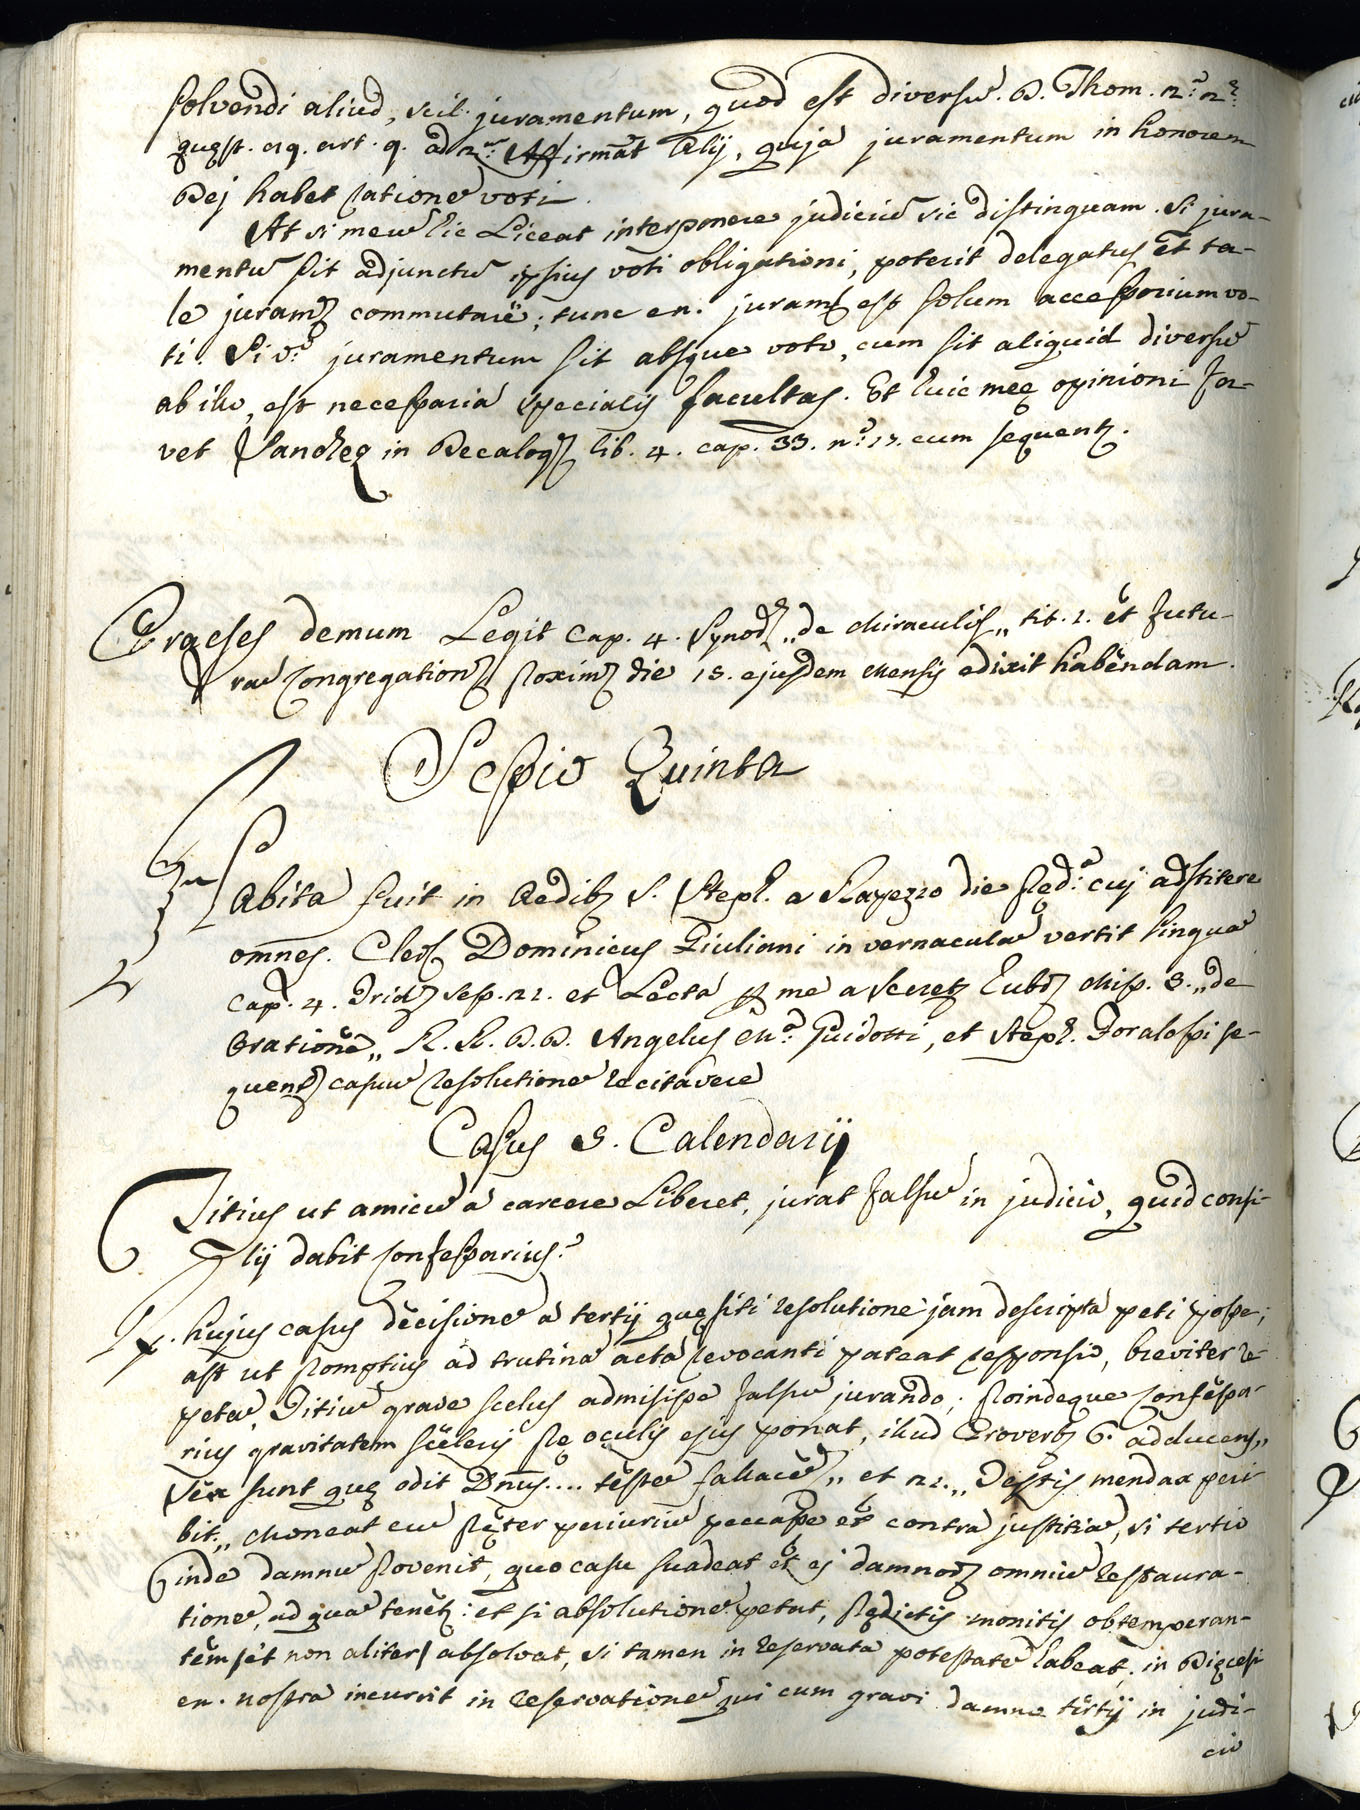 solvendi aliud, scil. juramentum, quod est diversũ. D. Thom. 2.ª 2.ª
quęst. 89. art. 9. ad Affirmãt Alij, quia juramentum in honorem
Dej habet rationẽ voti.
At si meũ hic Liceat interponere judiciũ sic distinguam. Si jura-
mentũ sit adjunctũ ipsius voti obligationi, poterit delegatus et ta-
le juram; commutare; tunc en. juram; est solum accessorium vo-
ti. Si v.º juramentum sit absque voto, cum sit aliquid diversũ
ab illo, est necessaria specialis facultas. Et huic meę opinioni fa-
vet Sanchez in Decalog; lib. 4. cap. 33. n.º 17. cum sequent;.
Praeses demum Legit Cap. 4. Synod; „de Miraculis„ tit. 1. et futu-
rã Congregation; proxim; die 15. ejusdem Mensis edixit habendam.
Sessio Quinta
Habita fuit in Aedib; S. Steph. a die pręd.ª cuj adstitere
omnes. Cler; Dominicus Giuliani in vernaculã vertit linguã
Cap. 4. Trid; sess. 21. et Lecta p me a Secret; Eub; Miss. 8. „de
Oratione„ R. R. D. D. Angelus M.ª Guidotti, et Steph. Toralossi se-
quent; casuũ resolutionẽ recitavere
Casus 5. Calendarij
Titius ut amicũ a carcere Liberet, jurat falsũ in judicio, quid consi-
lij dabit Confessarius?
R. hujus casus decisionẽ a tertij quęsiti resolutione jam descripta peti posse;
ast ut promptius ad trutinã acta revocanti pateat responsio, breviter re-
petã, Titiũ grave scelus admisisse falsũ jurando; proindeque Confessa-
rius gravitatem sceleris prę oculis ejus ponat, illud Proverb; 6. adducens„
Sex sunt quę odit Dñus.... testẽ fallacẽ„ et 21. „Testis mendax peri-
bit„ Moneat eũ pręter periuriũ peccasse et contra justitiã, si tertio
inde damnũ provenit, quo casu suadeat et ej damnor; omniũ restaura-
tionẽ, ad quã tenet;: et si absolutionẽ petat, prędictis monitis obtemperan-
tem /et non aliter/ absolvat, si tamen in reservata potestatẽ habeat; in Diœcesi
en. nostra incurrit in reservationẽ qui cum gravi damno tertij in judi-
cio